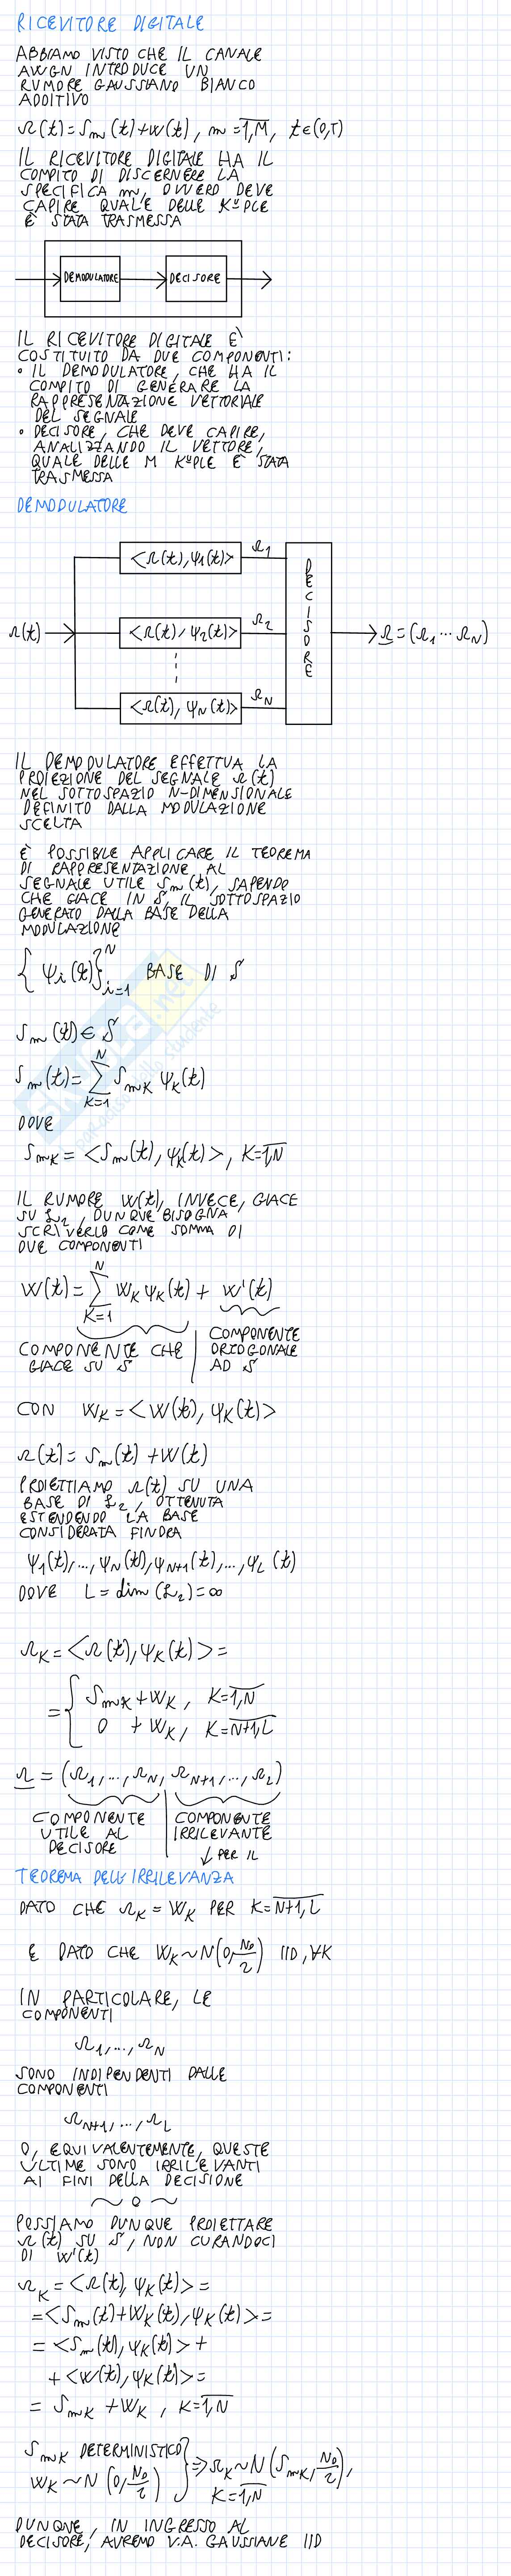 RICEVITORE DIGITALE
ABBIAMO VISTO CHE IL CANALE
AWGN INTRODUCE UN
RUMORE GAUSSIANO BIANCO
ADDITIVO
r(t)=Sm(t)+W(t), m=1,M, t∈(0,T)
IL RICEVITORE DIGITALE HA IL
COMPITO DI DISCERNERE LA
SPECIFICA m, OVVERO DEVE
CAPIRE QUALE DELLE KUPLE
È STATA TRASMESSA
DEMODULATORE DECISORE
IL RICEVITORE DIGITALE È
COSTITUITO DA DUE COMPONENTI:
• IL DEMODULATORE, CHE HA IL
COMPITO DI GENERARE LA
RAPPRESENTAZIONE VETTORIALE
DEL SEGNALE
• DECISORE, CHE DEVE CAPIRE,
ANALIZZANDO IL VETTORE,
QUALE DELLE M KUPLE È STATA
TRASMESSA
DEMODULATORE
<r(t),ψ1(t)> r1
r(t) <r(t),ψ2(t)> r2 DECISORE r=(r1...rN)
<r(t),ψN(t)> rN
IL DEMODULATORE EFFETTUA LA
PROIEZIONE DEL SEGNALE r(t)
NEL SOTTOSPAZIO N-DIMENSIONALE
DEFINITO DALLA MODULAZIONE
SCELTA
È POSSIBILE APPLICARE IL TEOREMA
DI RAPPRESENTAZIONE AL
SEGNALE UTILE Sm(t), SAPENDO
CHE GIACE IN S, IL SOTTOSPAZIO
GENERATO DALLA BASE DELLA
MODULAZIONE
{ψi(t)}i=1^N BASE DI S
Sm(t)∈S
Sm(t)=∑K=1^N SmK ψK(t)
DOVE
SmK = <Sm(t),ψK(t)>, K=1,N
IL RUMORE W(t), INVECE, GIACE
SU L2, DUNQUE BISOGNA
SCRIVERLO COME SOMMA DI
DUE COMPONENTI
W(t)=∑K=1^N WK ψK(t) + W'(t)
COMPONENTE CHE GIACE SU S | COMPONENTE ORTOGONALE AD S
CON WK = <W(t),ψK(t)>
r(t)=Sm(t)+W(t)
PROIETTIAMO r(t) SU UNA
BASE DI L2, OTTENUTA
ESTENDENDO LA BASE
CONSIDERATA FINORA
ψ1(t),...,ψN(t),ψN+1(t),...,ψL(t)
DOVE L=dim(L2)=∞
rK=<r(t),ψK(t)>=
={ SmK+WK, K=1,N
0 +WK, K=N+1,L
r=(r1,...,rN,rN+1,...,rL)
COMPONENTE UTILE AL DECISORE | COMPONENTE IRRILEVANTE
↓ PER IL
TEOREMA DELL'IRRILEVANZA
DATO CHE rK=WK PER K=N+1,L
E DATO CHE WK~N(0,N0/2) IID,∀K
IN PARTICOLARE, LE
COMPONENTI
r1,...,rN
SONO INDIPENDENTI DALLE
COMPONENTI
rN+1,...,rL
O, EQUIVALENTEMENTE, QUESTE
ULTIME SONO IRRILEVANTI
AI FINI DELLA DECISIONE
~ o ~
POSSIAMO DUNQUE PROIETTARE
r(t) SU S, NON CURANDOCI
DI W'(t)
rK=<r(t),ψK(t)>=
=<Sm(t)+WK(t),ψK(t)>=
=<Sm(t),ψK(t)>+
+<W(t),ψK(t)>=
=SmK+WK, K=1,N
SmK DETERMINISTICO
WK~N(0,N0/2) } ⇒ rK~N(SmK,N0/2),
K=1,N
DUNQUE, IN INGRESSO AL
DECISORE, AVREMO V.A. GAUSSIANE IID